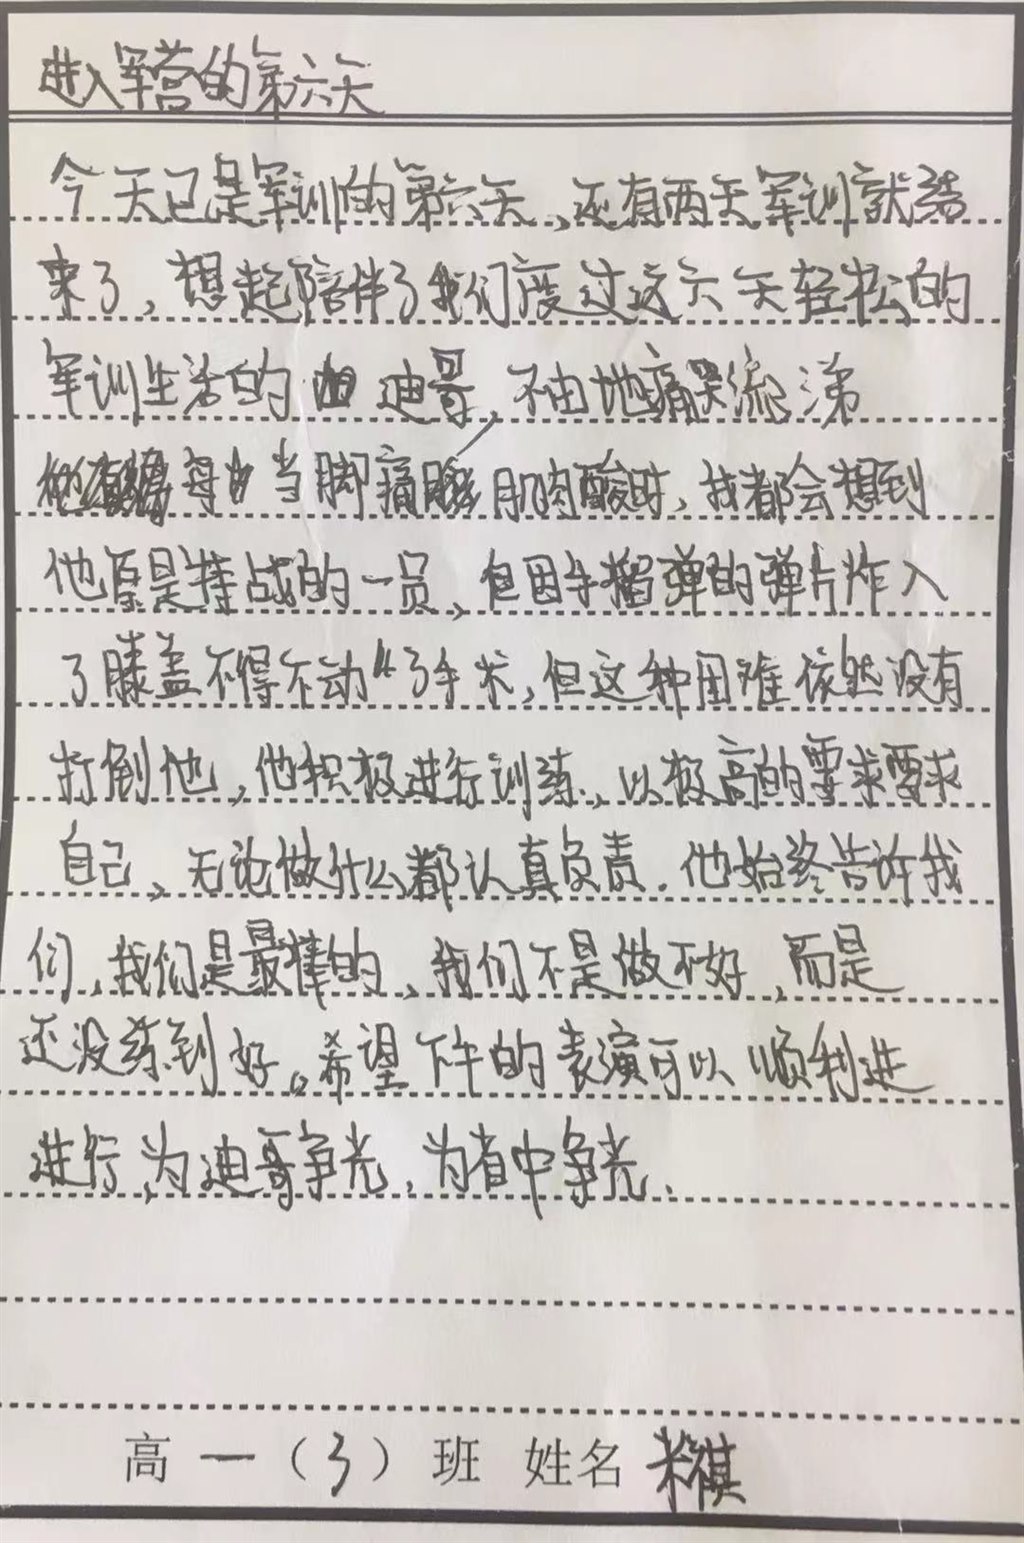 进入军营的第六天
今天已是军训的第六天,还有两天军训就结
束了,想起陪伴了我们度过这六天轻松的
军训生活的 迪哥,不由地痛哭流涕
每当脚痛 肌肉酸时,我都会想到
他原是特战的一员,但因手榴弹的弹片炸入
了膝盖不得不动了手术,但这种困难依然没有
打倒他,他积极进行训练,以极高的要求要求
自己,无论做什么都认真负责.他始终告诉我
们,我们是最棒的,我们不是做不好,而是
还没练到好。希望下午的表演可以顺利进
进行,为迪哥争光,为省中争光.
高一(3)班 姓名 祺